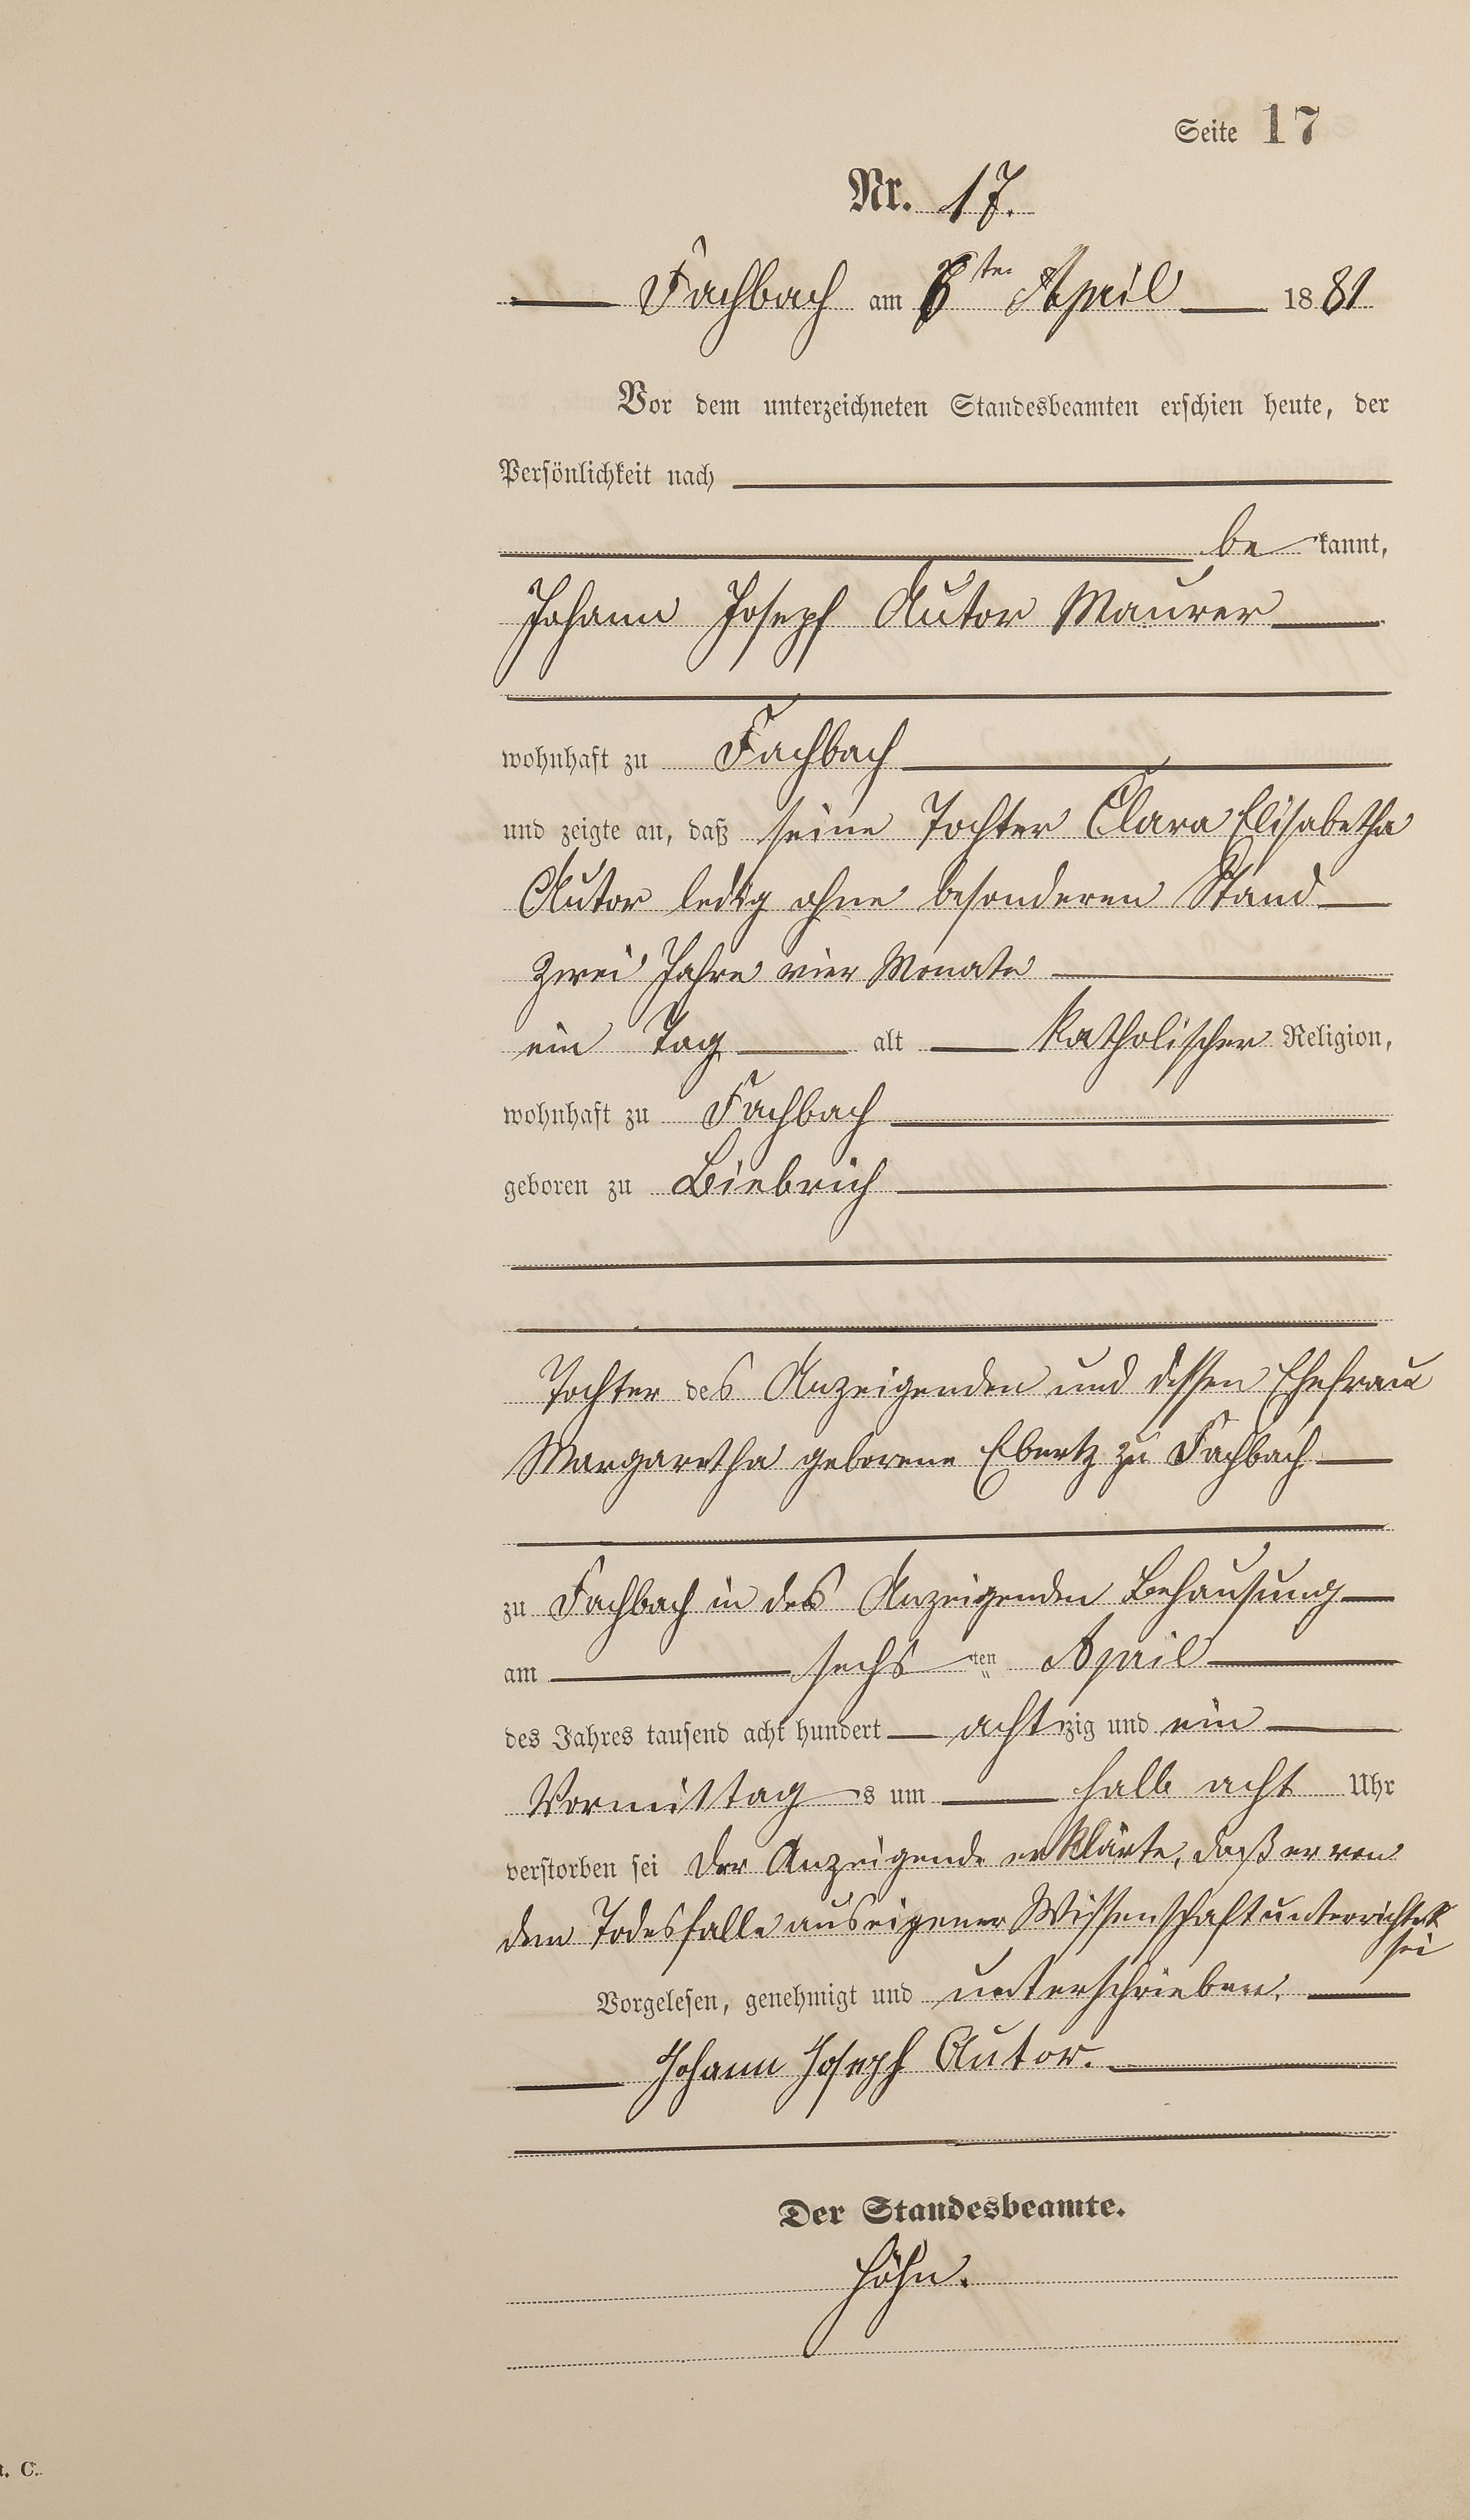 Seite 17
Nr. 17.
Fachbach am 6ten April 1881
Vor dem unterzeichneten Standesbeamten erschien heute, der
Persönlichkeit nach
be kannt,
Johann Joseph Autor Maurer
wohnhaft zu Fachbach
und zeigte an, daß seine Tochter Clara Elisabetha
Autor ledig ohne besonderen Stand
zwei Jahre vier Monate
ein Tag alt katholischer Religion,
wohnhaft zu Fachbach
geboren zu Biebrich
Tochter des Anzeigenden und dessen Ehefrau
Margaretha geborene Ebertz zu Fachbach
zu Fachbach in des Anzeigenden Behausung
am sechs ten April
des Jahres tausend acht hundert achtzig und ein
Vormittag s um halb acht Uhr
verstorben sei Der Anzeigende erklärte, daß er von
dem Todesfalle aus eigener Wissenschaft unterrichtet
sei
Vorgelesen, genehmigt und unterschrieben.
Johann Joseph Autor.
Der Standesbeamte.
Höhn.
C.